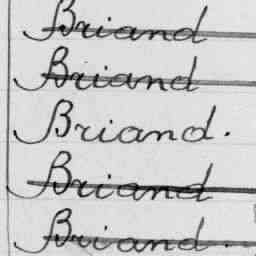 Briand
Briand
Briand.
Briand
Briand.